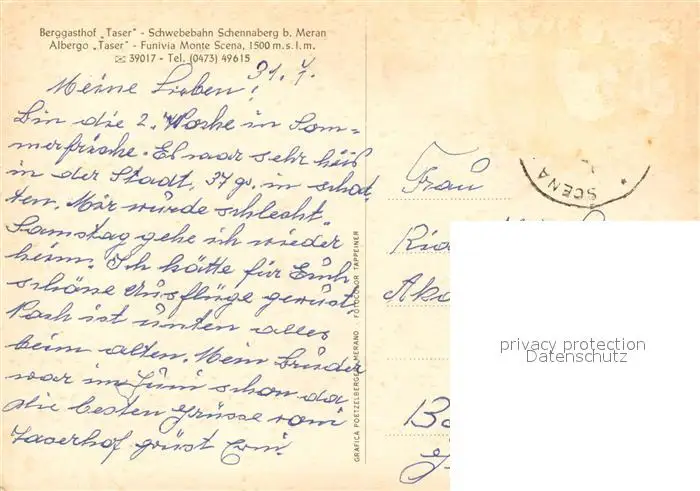 Berggasthof „Taser" - Schwebebahn Schennaberg b. Meran
Albergo „Taser" - Funivia Monte Scena, 1500 m.s.l.m.
39017 - Tel. (0473) 49615
31.7.
Meine Lieben!
Bin die 2. Woche in Som-
merfrische. Es war sehr heiß
in der Stadt, 37 gr. in schat
ten. Mir wurde schlecht.
Samstag gehe ich wieder
heim. Ich hätte für Euch
schöne Ausflüge gewüst.
Noch ist unten alles
beim alten. Mein Bruder
war im Juni schon da
die besten Grüsse vom
Taserhof grüst Erni
GRAFICA POETZELBERGER MERANO - FOTOCOLOR TAPPEINER
SCENA
Frau
privacy protection
Datenschutz